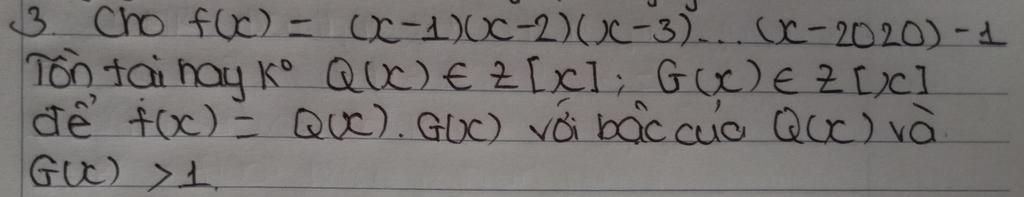 3. Cho f(x) = (x-1)(x-2)(x-3)... (x-2020)-1
Tồn tại hay k° Q(x) ∈ Z[x]; G(x) ∈ Z[x]
để f(x) = Q(x). G(x) với bậc của Q(x) và
G(x) > 1.